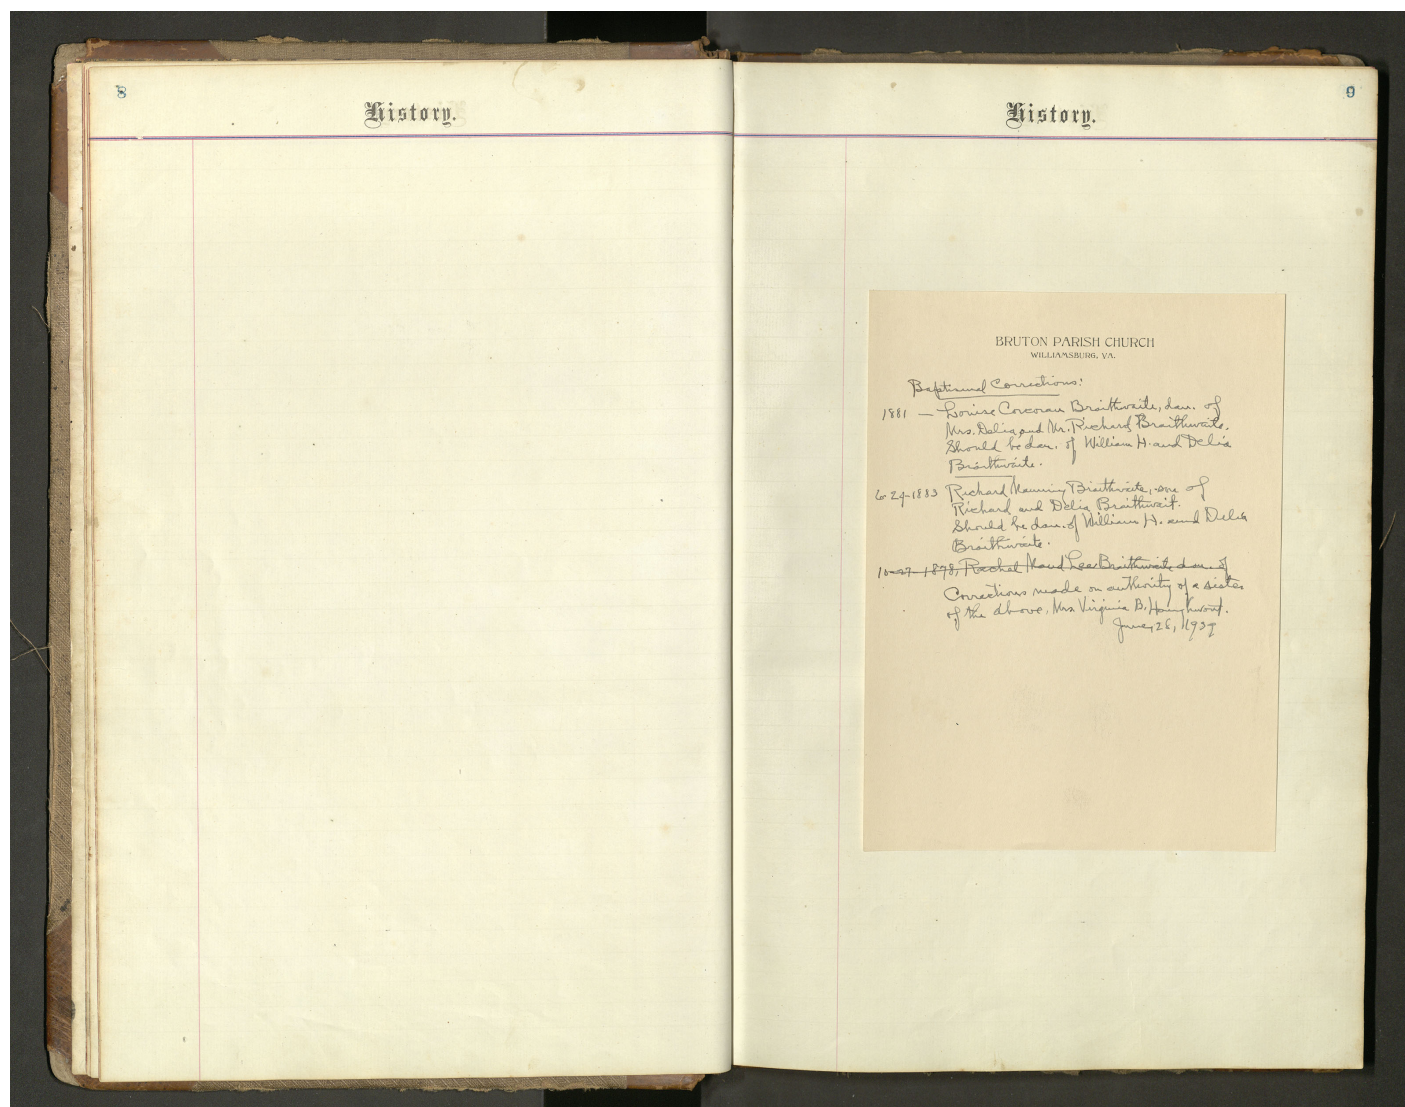 8
History.
9
History.
BRUTON PARISH CHURCH
WILLIAMSBURG, VA.
Baptismal Corrections:
1881 — Louise Corcoran Braithwaite, dau. of
Mrs. Delia and Mr. Richard Braithwaite.
Should be dau. of William H. and Delia
Braithwaite.
6-24-1883 Richard Manning Braithwaite, son of
Richard and Delia Braithwait.
Should be dau. of William H. and Delia
Braithwaite.
10-27-1898, Rachel Maud Lee Braithwaite dau. of
Corrections made on authority of a sister
of the above, Mrs. Virginia B. Haughwout.
26, 1939